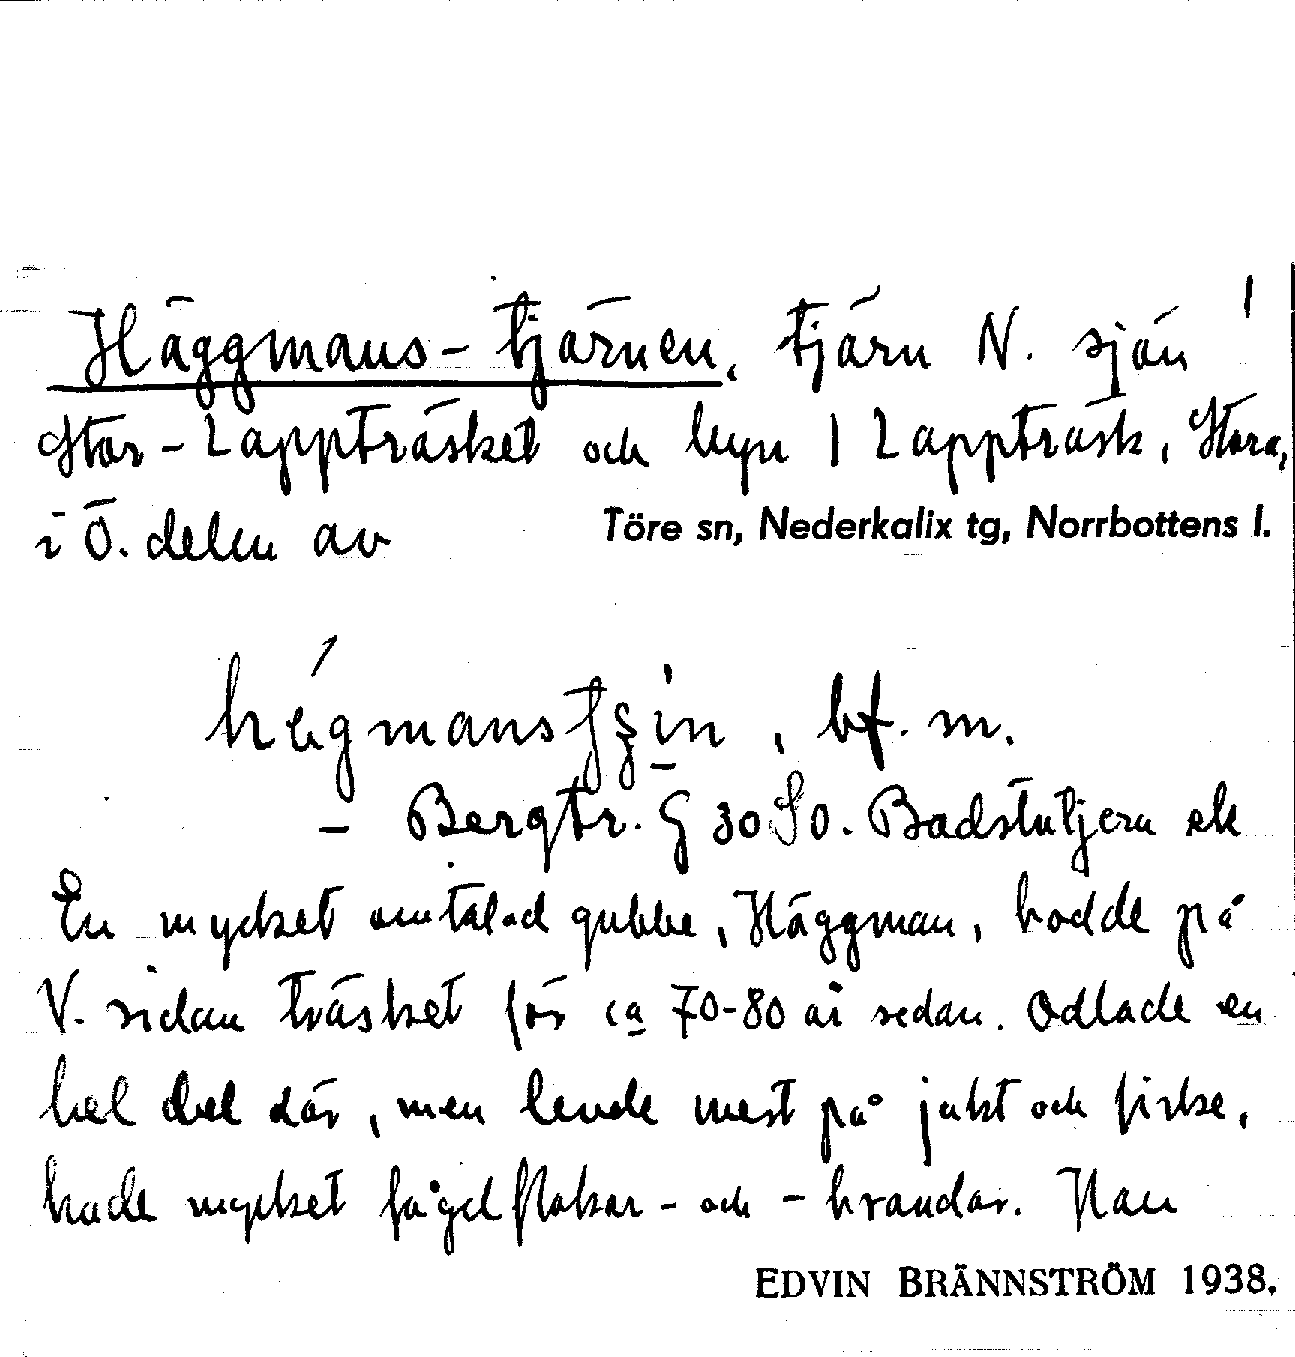 Häggmans-tjärnen, tjärn N. sjön
Stor-Lappträsket och byn Lappträsk, Stora,
i Ö. delen av Töre sn, Nederkalix tg, Norrbottens l.
bf. m.
– Bergtr. G 30 So. Badstutjern ek
En mycket omtalad gubbe, Häggman, bodde på
V. sidan träsket för ca 70-80 år sedan. Odlade en
hel del där, men levde mest på jakt och fiske,
hade mycket fågelflakar- och -brandar. Han
EDVIN BRÄNNSTRÖM 1938.